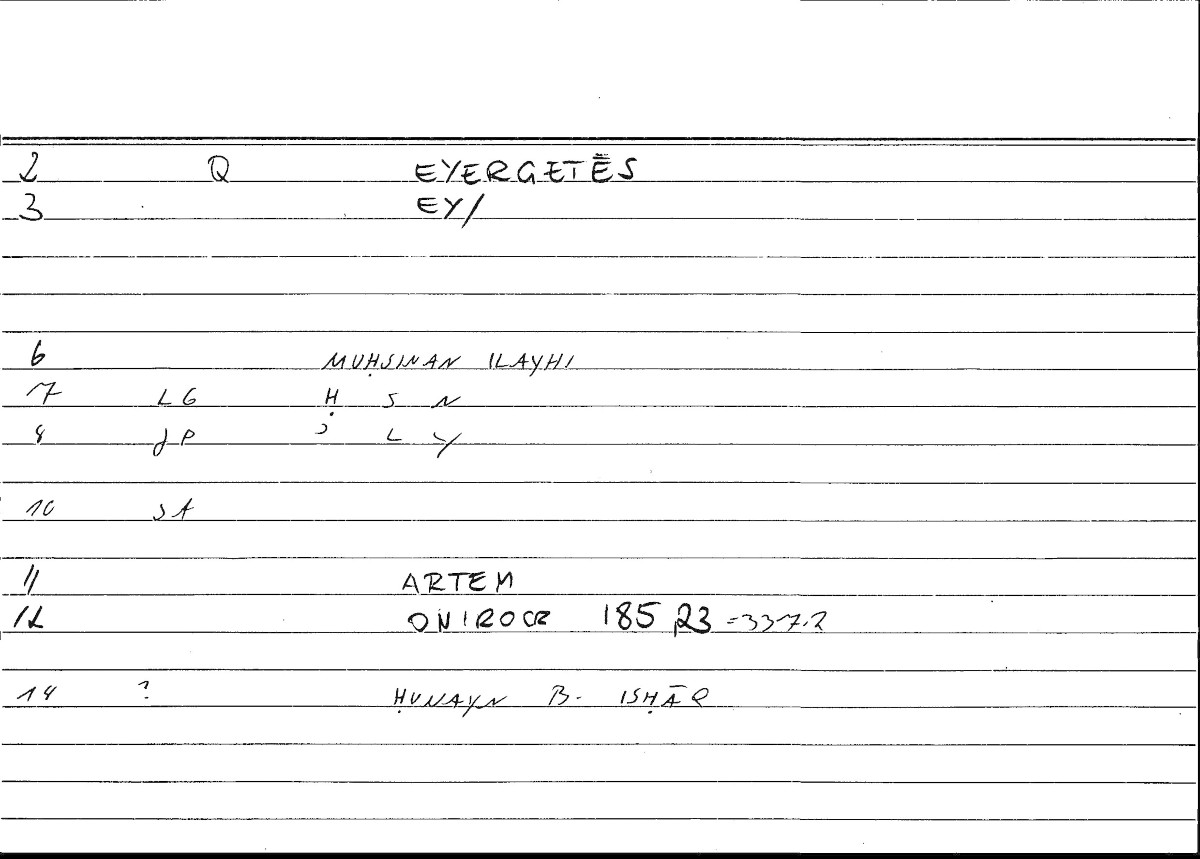 2 Q EYERGETĒS
3 EY/
6 MUḤSINAN ILAYHI
7 LG Ḥ S N
8 JP ʾ L Y
10 SA
11 ARTEM
12 ONIROCR 185,23 =337.2
14 ? ḤUNAYN B. ISḤĀQ